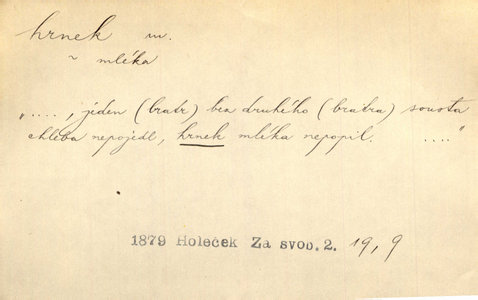 hrnek m.
~ mléka
„...., jeden (bratr) bez druhého (bratra) sousta
chleba nepojedl, hrnek mléka nepopil. ...."
1879 Holeček Za svob. 2. 19, 9